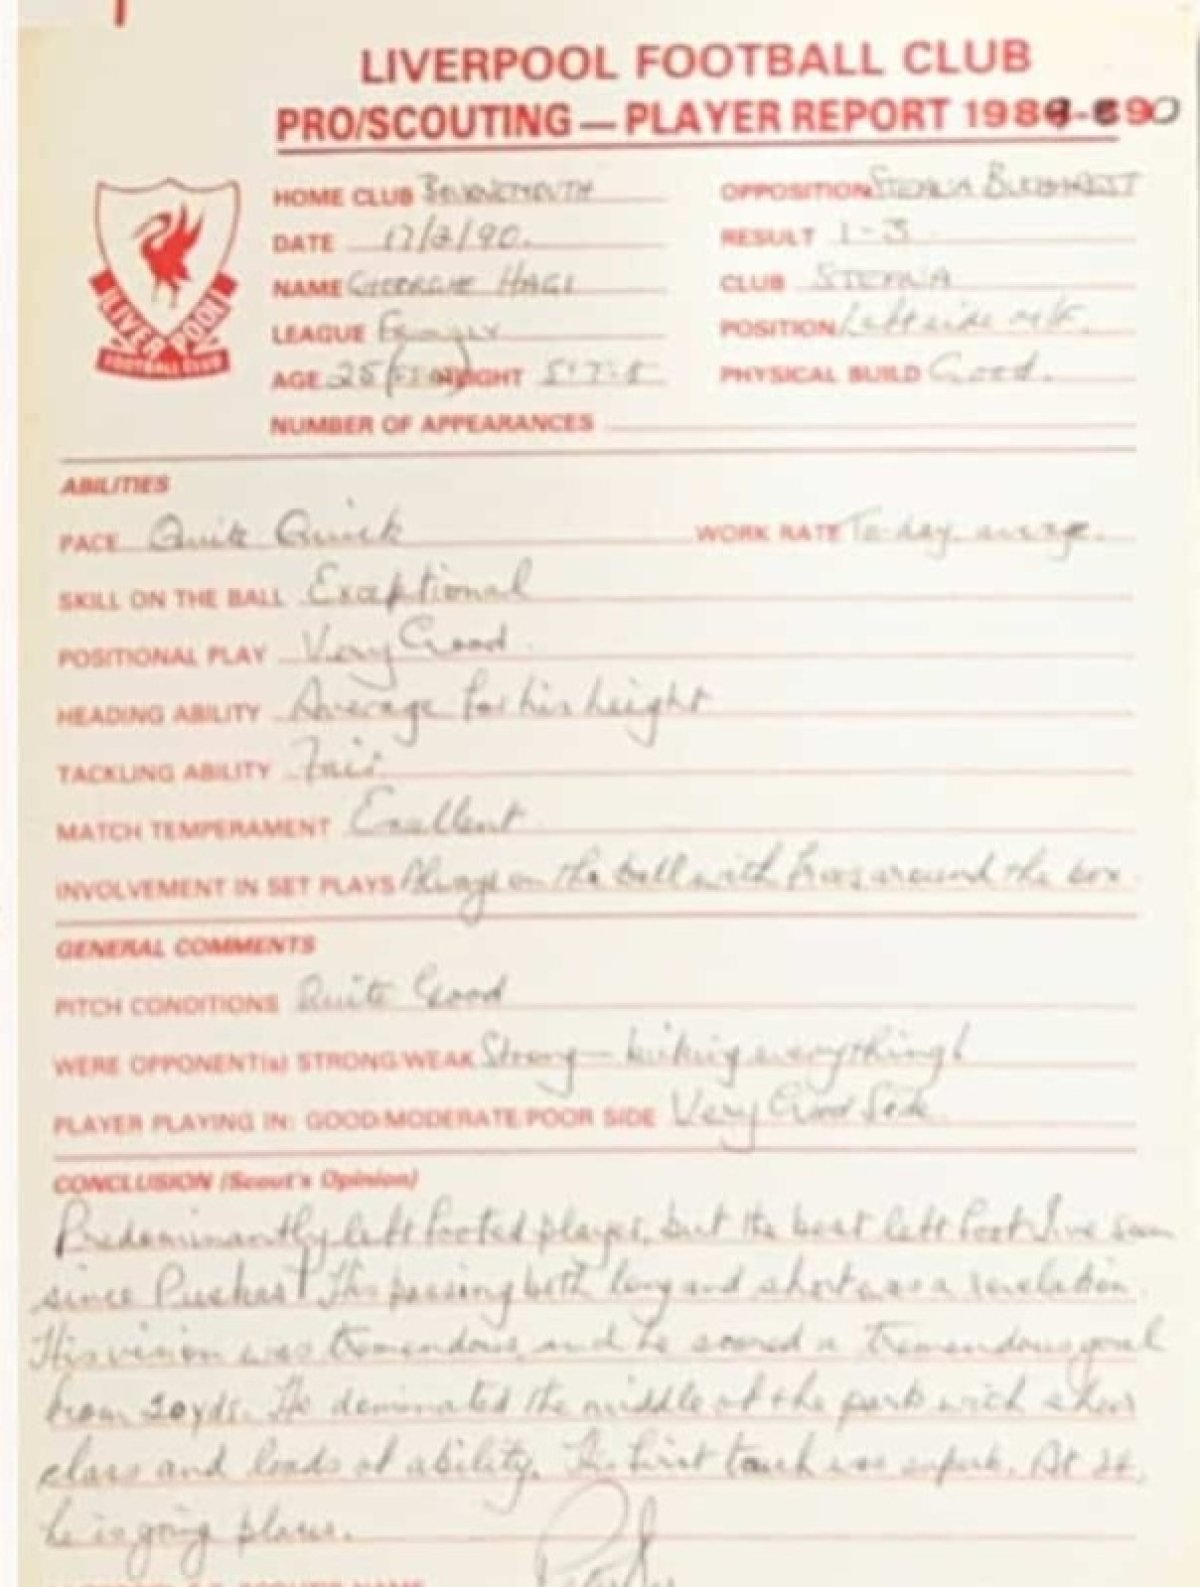 LIVERPOOL FOOTBALL CLUB
PRO/SCOUTING — PLAYER REPORT 1989-90
HOME CLUB BOURNEMOUTH OPPOSITION STEAUA BUCHAREST
DATE 17/2/90. RESULT 1-3
NAME GHEORGHE HAGI CLUB STEAUA
LEAGUE POSITION Left side M/F.
AGE 25 HEIGHT 5'7.5 PHYSICAL BUILD Good.
NUMBER OF APPEARANCES
LIVERPOOL
FOOTBALL CLUB
ABILITIES
PACE Quite Quick WORK RATE To-day, average.
SKILL ON THE BALL Exceptional
POSITIONAL PLAY Very Good.
HEADING ABILITY Average for his height
TACKLING ABILITY Fair.
MATCH TEMPERAMENT Excellent
INVOLVEMENT IN SET PLAYS Always on the ball with frees around the box.
GENERAL COMMENTS
PITCH CONDITIONS Quite Good
WERE OPPONENT(s) STRONG/WEAK Strong - kicking everything!
PLAYER PLAYING IN: GOOD/MODERATE/POOR SIDE Very Good Side.
CONCLUSION (Scout's Opinion)
Predominantly left footed player, but the best left foot I've seen
since Puskas! His passing both long and short was a revelation.
His vision was tremendous and he scored a tremendous goal
from 20yds. He dominated the middle of the park with sheer
class and loads of ability. His first touch was superb. At 24,
he is going places.